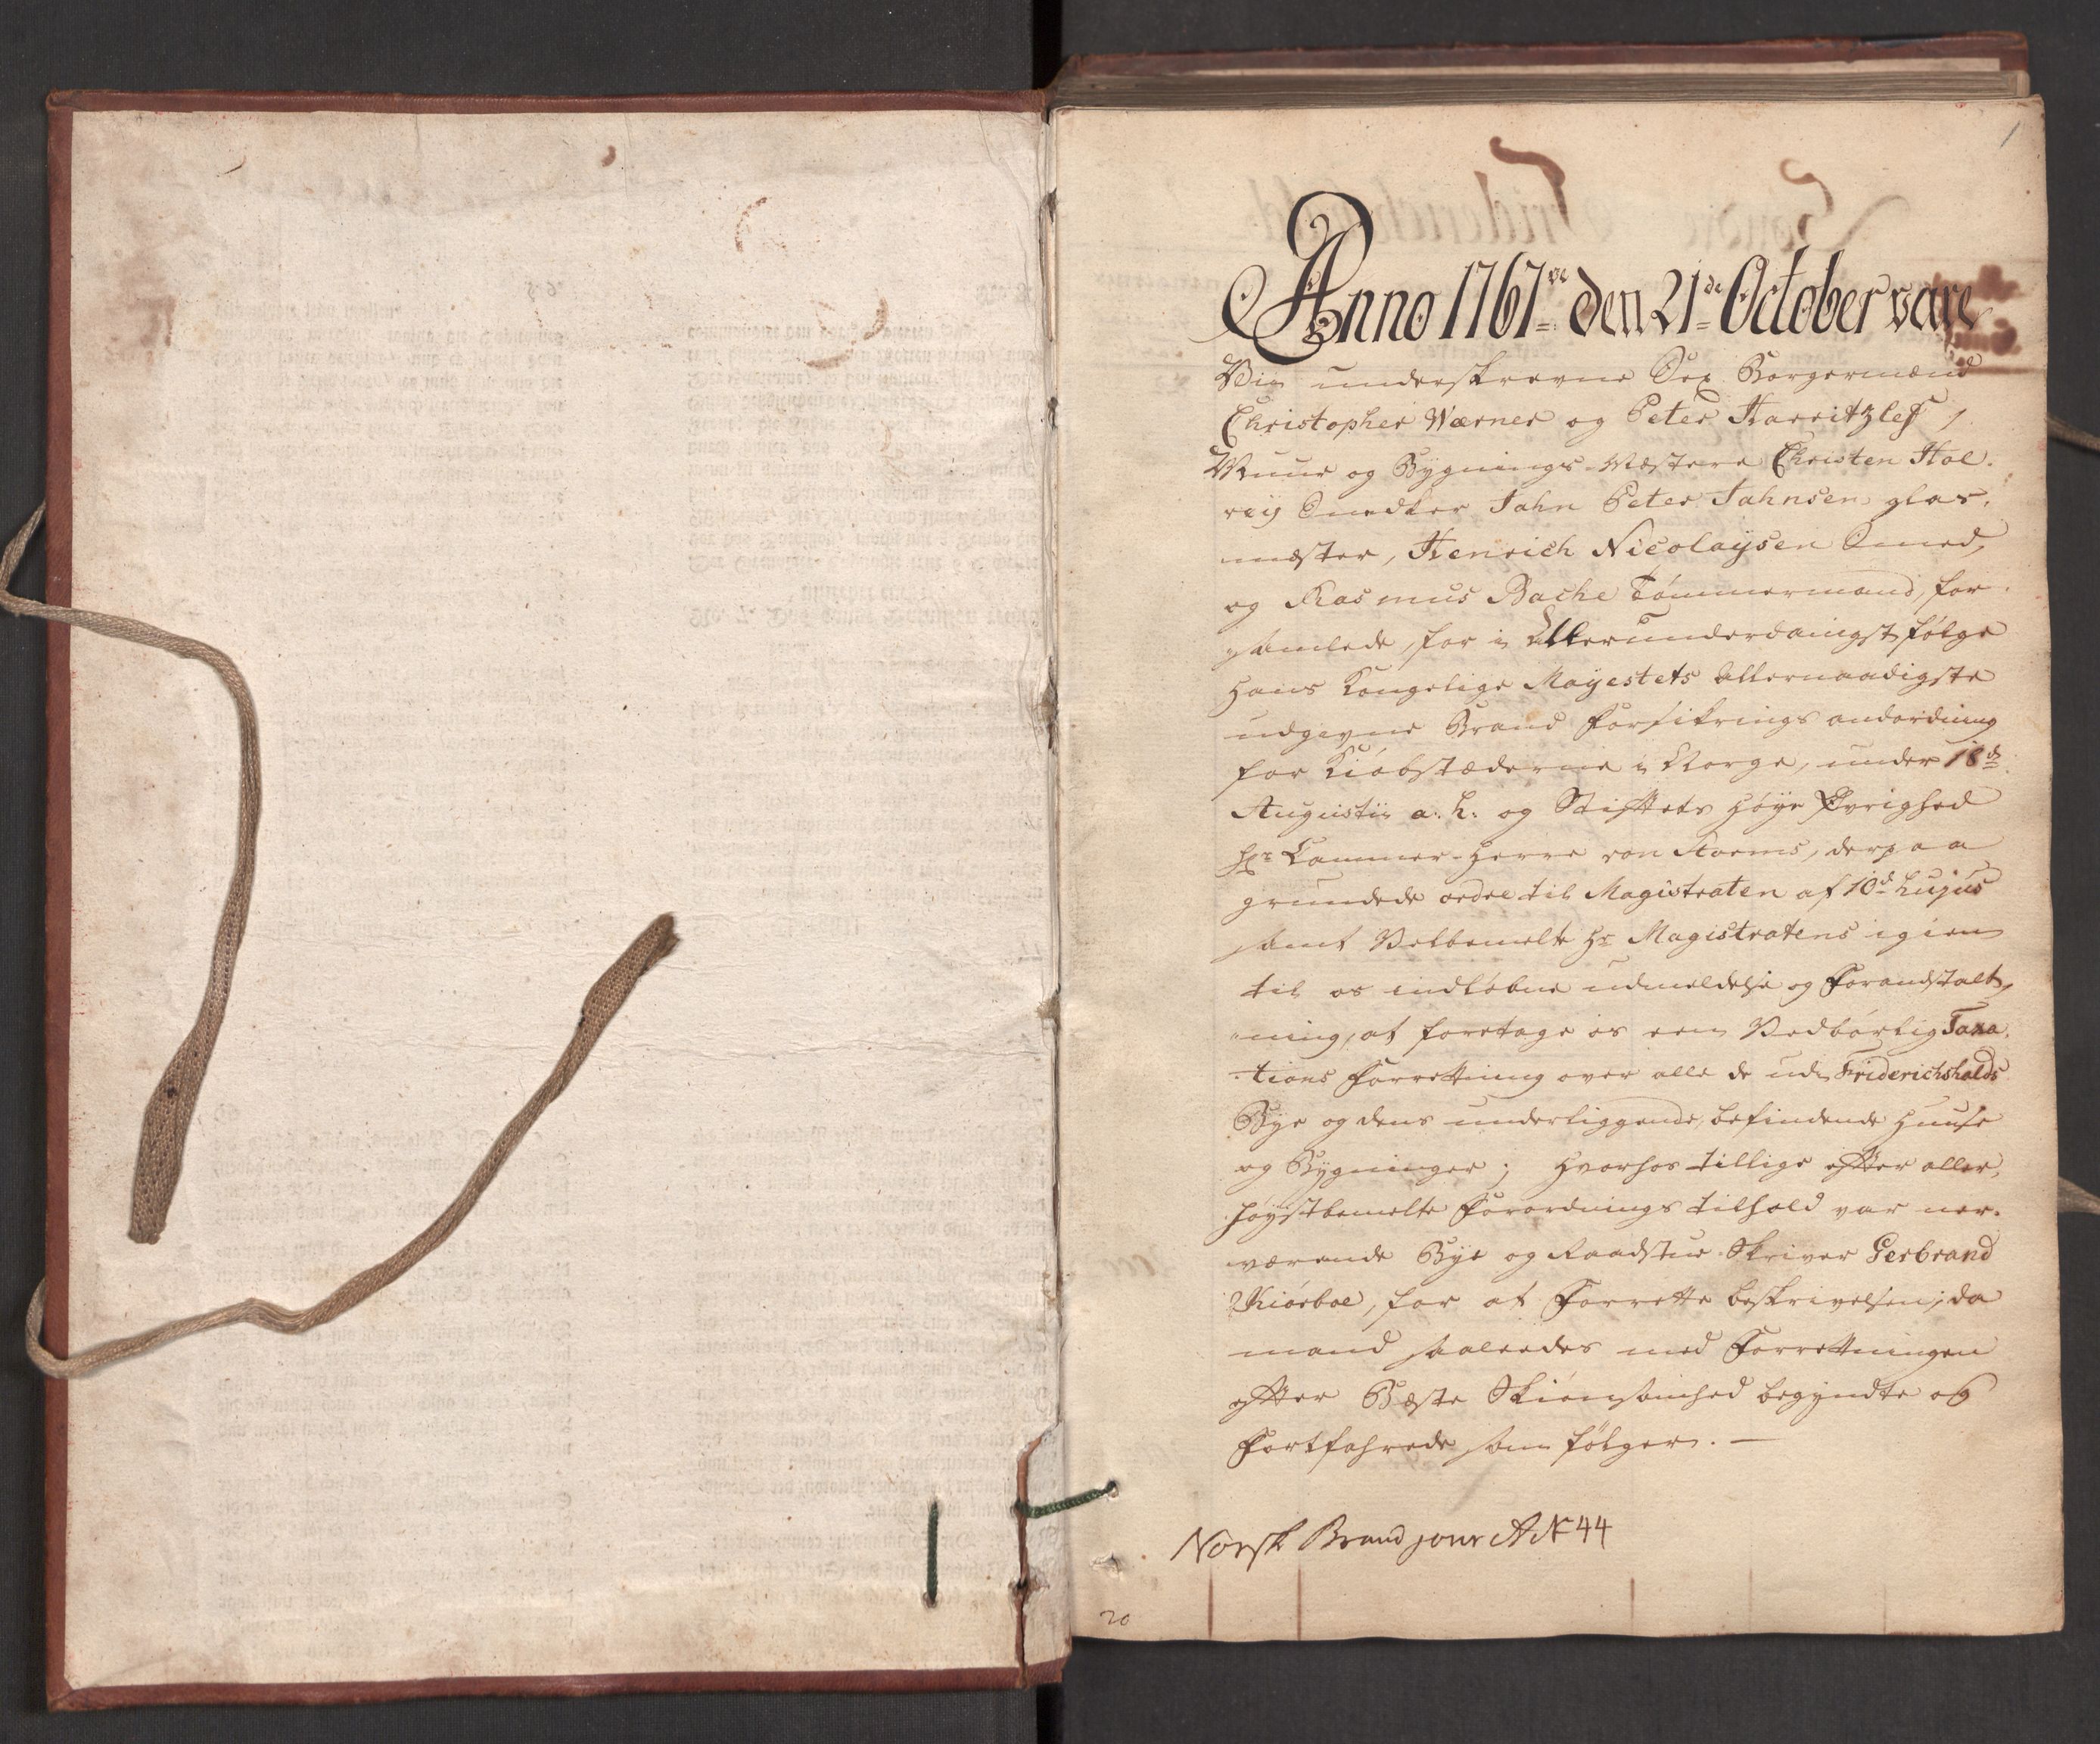 1
Anno 1767de den 21de October vare
Vi underskrevne Sex Borgermænd
Christopher Wærner og Peter Harritzlef,
Muur og Bygnings-Mæstere Christen Hol-
reij Snedker Jahn Peter Jahnsen glar-
mæster, Henrich Nicolaijsen Smed,
og Rasmus Bache Tømmermand, for-
samlede, for i Allerunderdanigst følge
Hans Kongelige Mayestets Allernaadigste
udgivne Brand Forsikrings andordning
for Kiøbstæderne i Norge, under 18de
Augustii a: h: og Stiftets Høye Øvrighed
Hr Cammer-Herre von Storms, derpaa
grundede ordre til Magistraten af 10d hujus
samt Velbemelte Hr Magistratens igien
til os indløbne udmeldelse og Foranstalt-
ning, at foretage os een Vedbørlig Taxa-
tions Forretning over alle de udi Friderichshalds
Bye og dens underliggende, befindende Huuse
og Bygninger; hvorhos tillige efter aller-
høystbemelte Forordnings tilhold var nær-
værende Bye og Raadstue-Skriver Gerbrand
Kiørboe, for at Forrette beskrivelsen; da
mand saaleedes med Forretningen
efter Bæste Skiønsomhed begyndte og
Fortfahrede som følger. —
Norsk Brand jour A No 44
20